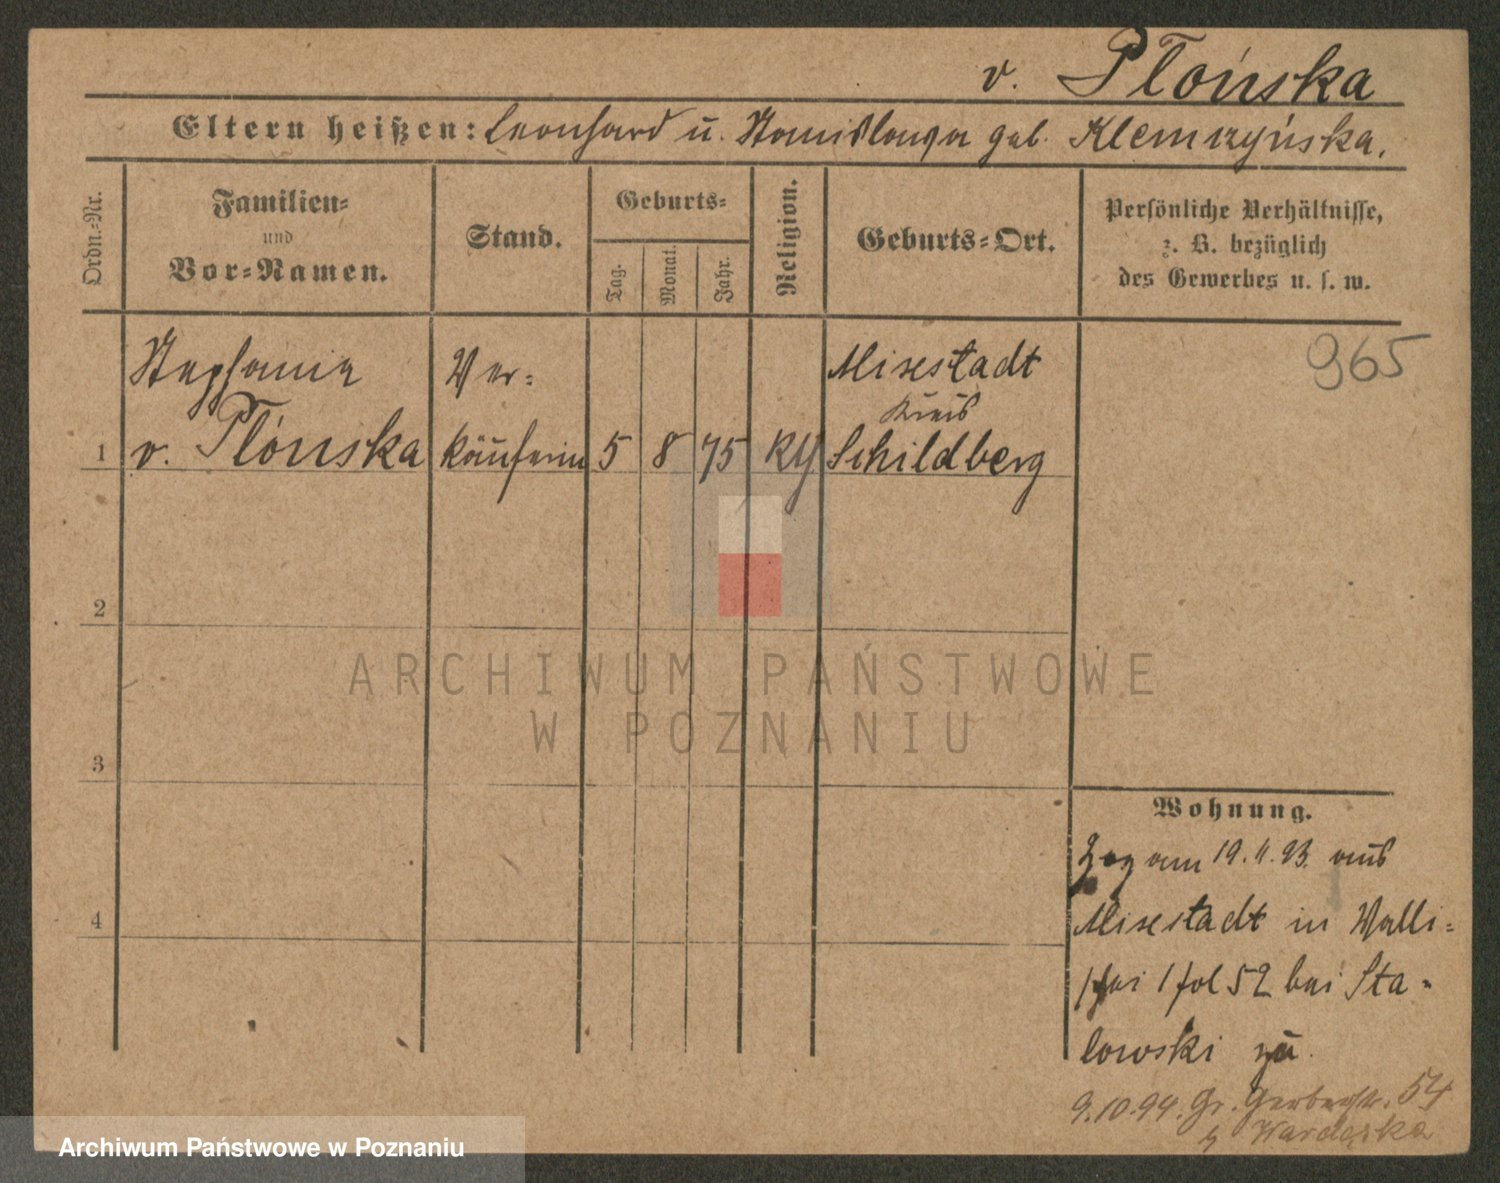 v. Płońska
Eltern heißen: Leonhard u. Stanislawa geb. Klemczyńska.
Ordn.-Nr.
Familien-
und
Vor-Namen.
Stand.
Geburts-
Tag.
Monat.
Jahr.
Religion.
Geburts-Ort.
Persönliche Verhältnisse,
z. B. bezüglich
des Gewerbes u. s. w.
965
Stephania
v. Płońska
Ver-
käuferin
5
8
75
Mixstadt
Kreis
Schildberg
1
2
3
4
ARCHIWUM PAŃSTWOWE
W POZNANIU
Wohnung.
Zog am 19. 93. aus
Mixstadt in Walli-
schei 1 fol 52 bei Sta-
lowski zu.
9.10.94. Gr. Gerberstr. 54
Archiwum Państwowe w Poznaniu